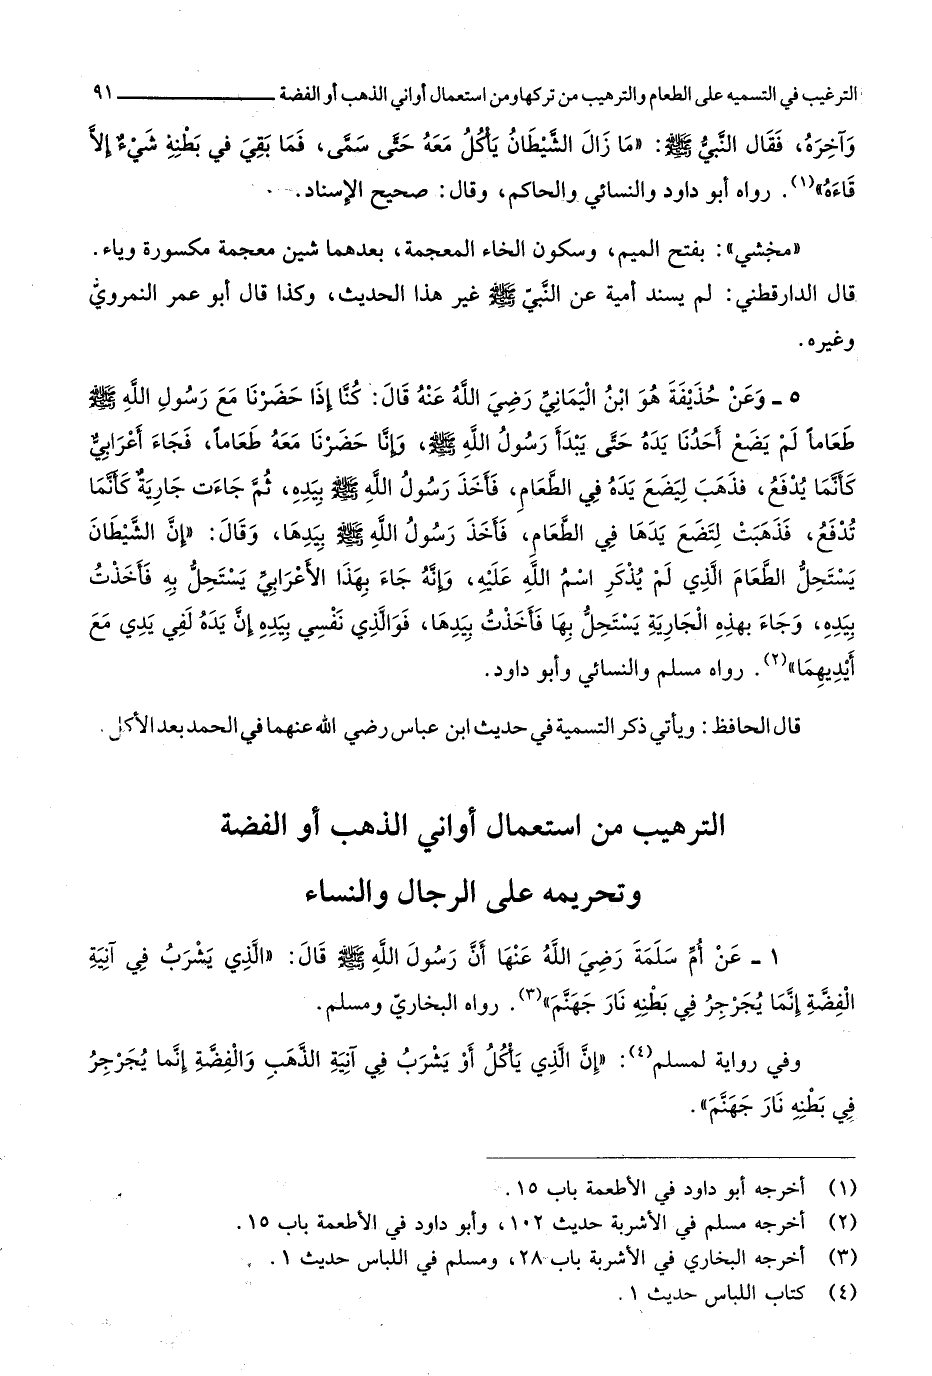 الترغيب في التسميه على الطعام والترهيب من تركها ومن استعمال أواني الذهب أو الفضة ــــــــــ ٩١
وَآخِرَهُ، فَقَال النَّبيُّ ﷺ: «مَا زَالَ الشَّيْطَانُ يَأْكُلُ مَعَهُ حَتَّى سَمَّى، فَمَا بَقِيَ في بَطْنِهِ شَيْءٌ إلاَّ
قَاءَهُ»(١). رواه أبو داود والنسائي والحاكم، وقال: صحيح الإسناد.
«مخشي»: بفتح الميم، وسكون الخاء المعجمة، بعدهما شين معجمة مكسورة وياء.
قال الدارقطني: لم يسند أمية عن النَّبيّ ﷺ غير هذا الحديث، وكذا قال أبو عمر النمرويُّ
وغيره.
٥ ـ وَعَنْ حُذَيْفَةَ هُوَ ابْنُ الْيَمَانِيِّ رَضِيَ اللَّهُ عَنْهُ قَالَ: كُنَّا إذَا حَضَرْنَا مَعَ رَسُولِ اللَّهِ ﷺ
طَعَاماً لَمْ يَضَعْ أَحَدُنَا يَدَهُ حَتَّى يَبْدَأَ رَسُولُ اللَّهِ ﷺ، وَإنَّا حَضَرْنَا مَعَهُ طَعَاماً، فَجَاءَ أَعْرَابِيٌّ
كَأَنَّمَا يُدْفَعُ، فذَهَبَ لِيَضَعَ يَدَهُ فِي الطَّعَامِ، فَأَخَذَ رَسُولُ اللَّهِ ﷺ بِيَدِهِ، ثُمَّ جَاءَت جَارِيَةٌ كَأَنَّمَا
تُدْفَعُ، فَذَهَبَتْ لِتَضَعَ يَدَهَا فِي الطَّعَامِ، فَأَخَذَ رَسُولُ اللَّهِ ﷺ بِيَدِهَا، وَقَالَ: «إنَّ الشَّيْطَانَ
يَسْتَحِلُّ الطَّعَامَ الَّذِي لَمْ يُذْكَرِ اسْمُ اللَّهِ عَلَيْهِ، وَإنَّهُ جَاءَ بِهَذَا الأَعْرَابِيِّ يَسْتَحِلُّ بِهِ فَأَخَذْتُ
بِيَدِهِ، وَجَاءَ بهذِهِ الْجَارِيَةِ يَسْتَحِلُّ بِهَا فَأَخَذْتُ بِيَدِهَا، فَوَالَّذِي نَفْسِي بِيَدِهِ إنَّ يَدَهُ لَفِي يَدِي مَعَ
أَيْدِيهِمَا»(٢). رواه مسلم والنسائي وأبو داود.
قال الحافظ: ويأتي ذكر التسمية في حديث ابن عباس رضي الله عنهما في الحمد بعد الأكل.
الترهيب من استعمال أواني الذهب أو الفضة
وتحريمه على الرجال والنساء
١ ـ عَنْ أُمِّ سَلَمَةَ رَضِيَ اللَّهُ عَنْهَا أَنَّ رَسُولَ اللَّهِ ﷺ قَالَ: «الَّذِي يَشْرَبُ فِي آنِيَةِ
الْفِضَّةِ إنَّمَا يُجَرْجِرُ فِي بَطْنِهِ نَارَ جَهَنَّمَ»(٣). رواه البخاريّ ومسلم.
وفي رواية لمسلم(٤): «إنَّ الَّذِي يَأْكُلُ أَوْ يَشْرَبُ فِي آنِيَةِ الذَّهَبِ وَالْفِضَّةِ إنَّما يُجَرْجِرُ
فِي بَطْنِهِ نَارَ جَهَنَّمَ».
(١) أخرجه أبو داود في الأطعمة باب ١٥.
(٢) أخرجه مسلم في الأشربة حديث ١٠٢، وأبو داود في الأطعمة باب ١٥.
(٣) أخرجه البخاري في الأشربة باب ٢٨، ومسلم في اللباس حديث ١.
(٤) كتاب اللباس حديث ١.